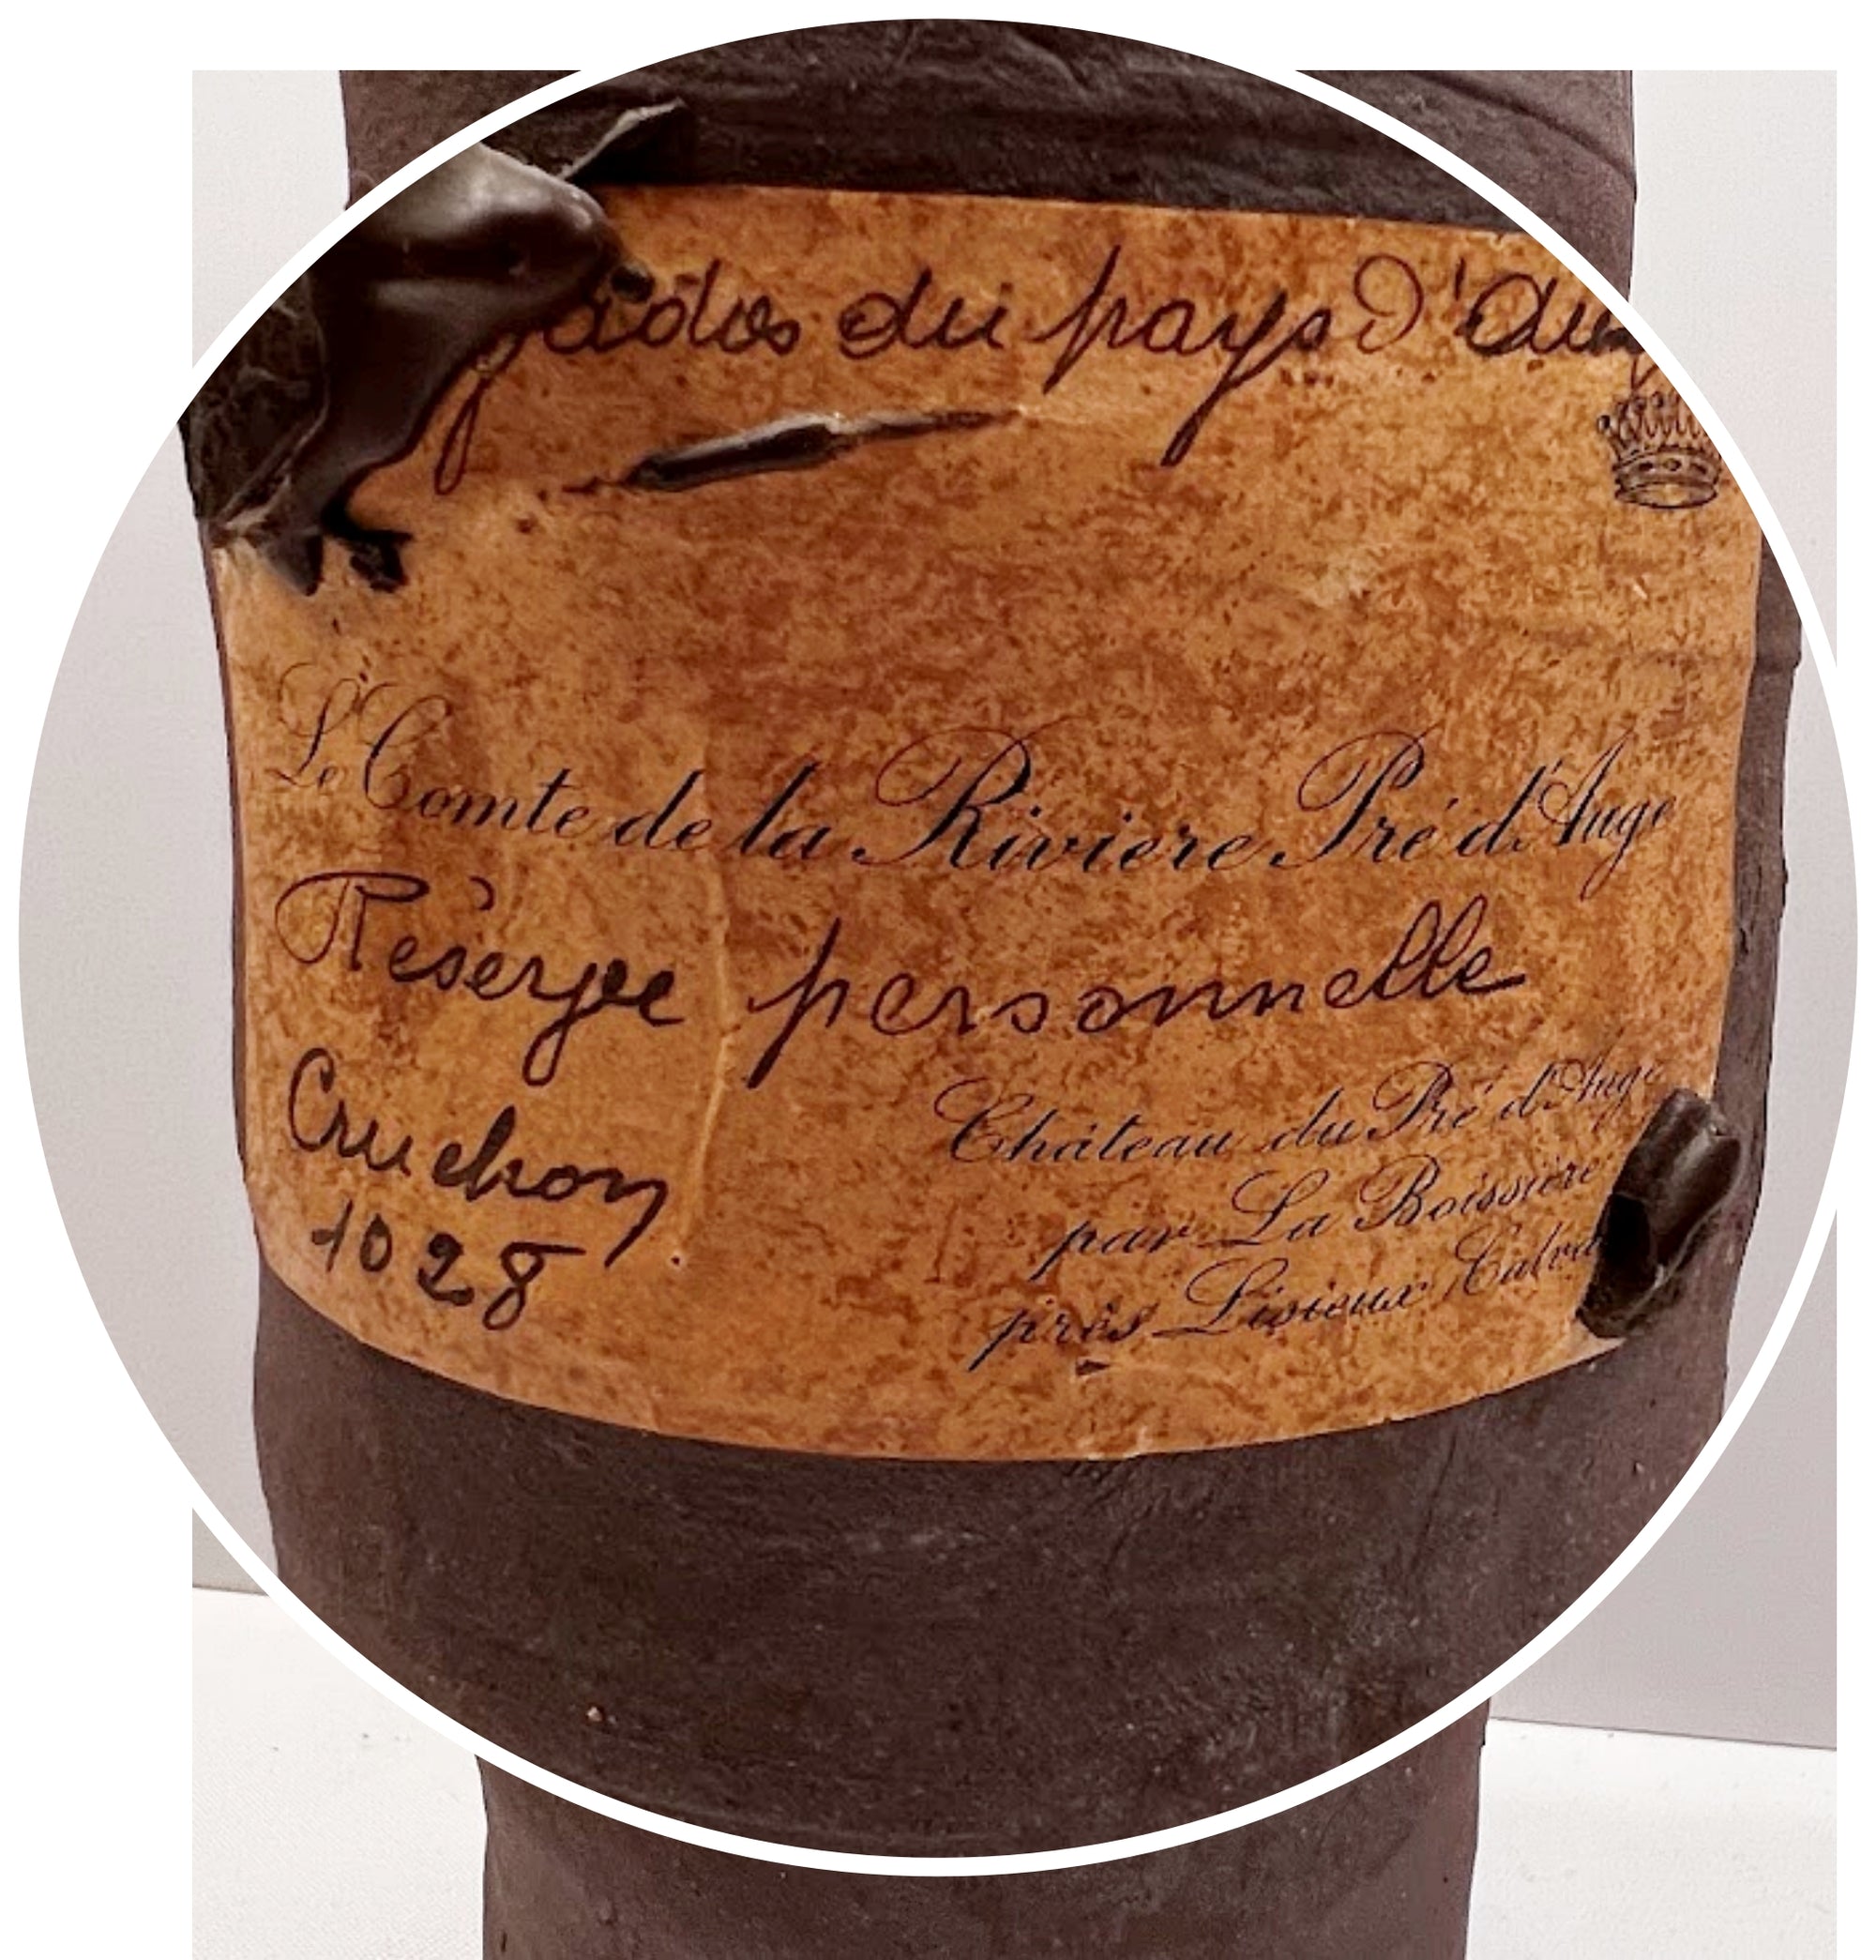 du pays d'Auge
Le Comte de la Riviere Pré d'Auge
Réserve personnelle
Cruchon
1028
Château du Pré d'Auge
par La Boissière
près Lisieux